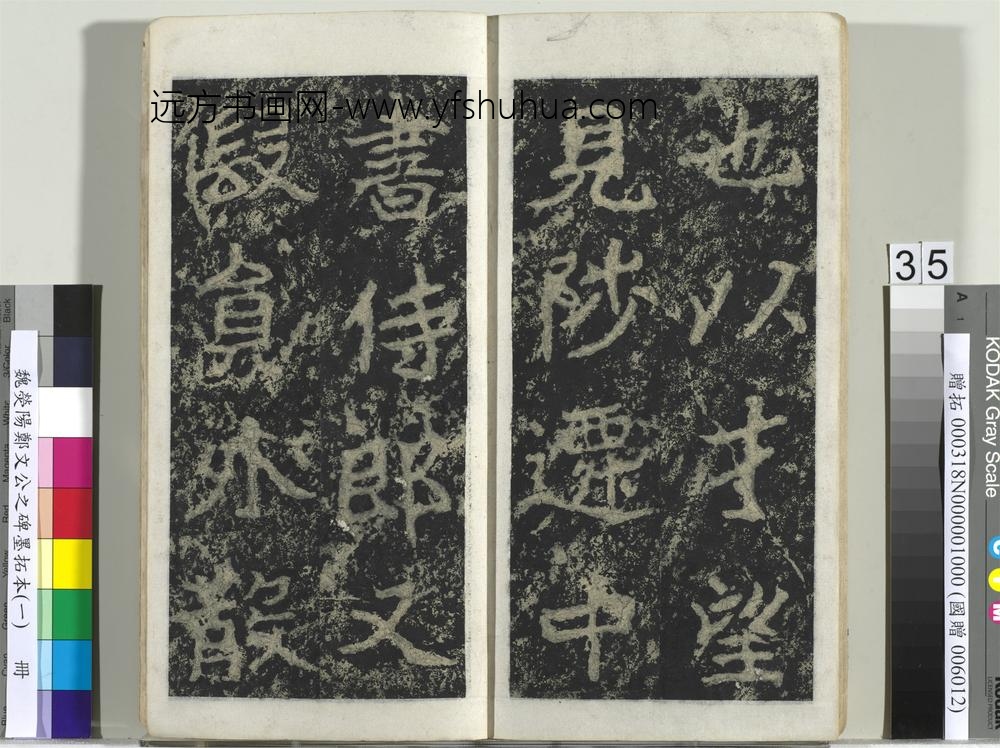 远方书画网-www.yfshuhua.com
也以才望
見陟遷中
書侍郎又
假員外散
35
魏熒陽鄭文公之碑墨拓本(一) 冊
贈拓 000318N000001000 (國贈 006012)
KODAK Gray Scale
A 1
C
Y
M
Black
3/Color
White
Magenta
Red
Yellow
Green
Cyan
Blue